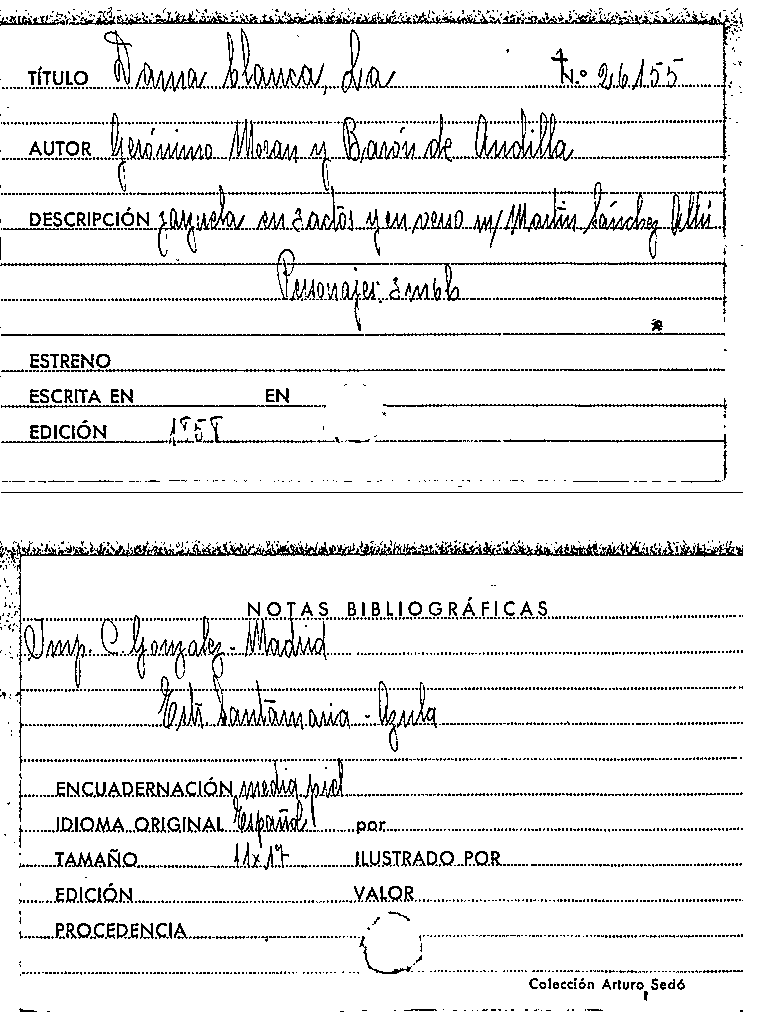 TÍTULO Dama blanca, La N.º 26155
AUTOR Gerónimo Moran y Barón de Andilla
DESCRIPCIÓN zarzuela en 3 actos y en verso m/ Martín Sánchez Allú
Personajes, 3 m 6 h
ESTRENO
ESCRITA EN EN
EDICIÓN 1858
NOTAS BIBLIOGRÁFICAS
Imp. C. Gonzalez - Madrid
Estr. Santamaria - Azula
ENCUADERNACIÓN media piel
IDIOMA ORIGINAL Español por
TAMAÑO 11x17 ILUSTRADO POR
EDICIÓN VALOR
PROCEDENCIA
Colección Arturo Sedó